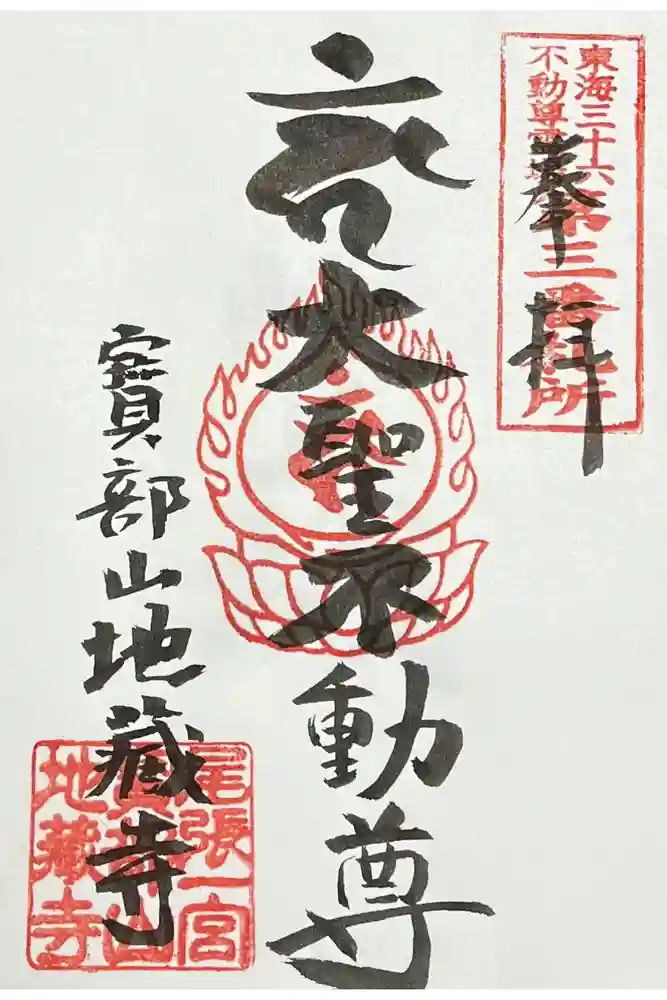 奉拝
東海三十六
不動尊霊場
第三番札所
大聖不動尊
寳部山
地蔵寺
尾張一宮
寳部山
地蔵寺